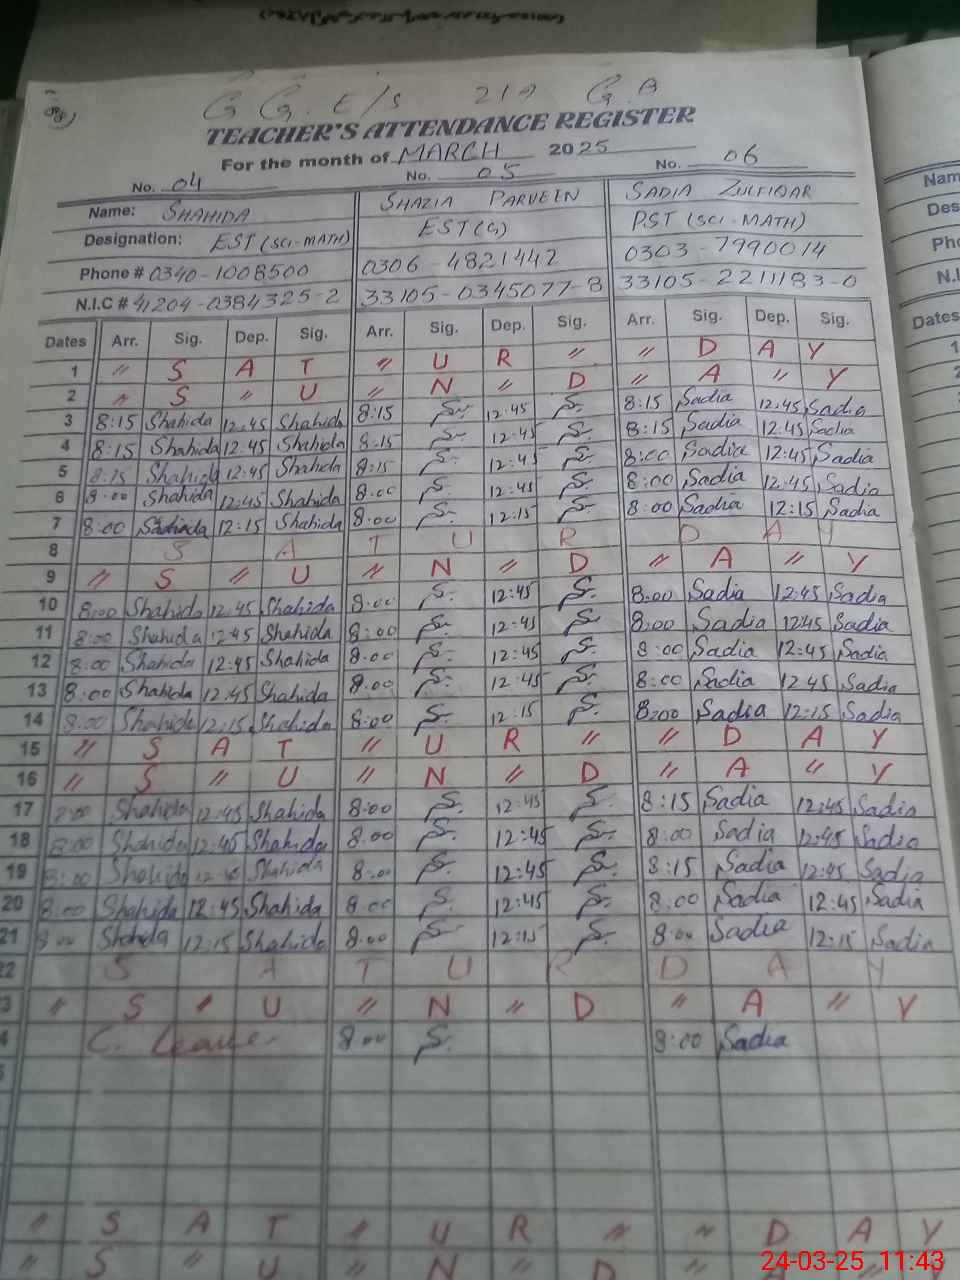 G G. E/S 219 G.B
TEACHER'S ATTENDANCE REGISTER
For the month of MARCH 2025
No. 04 No. 05 No. 06
Name: SHAHIDA SHAZIA PARVEEN SADIA ZULFIQAR
Designation: EST (SCI-MATH) EST (G) PST (SCI-MATH)
Phone # 0340-1008500 0306-4821442 0303-7990014
N.I.C # 41204-0384325-2 33105-0345077-8 33105-2211183-0
Dates Arr. Sig. Dep. Sig. Arr. Sig. Dep. Sig. Arr. Sig. Dep. Sig.
1 " S A T " U R " " D A Y
2 " S " U " N " D " A " Y
3 8:15 Shahida 12:45 Shahida 8:15 S. 12:45 S. 8:15 Sadia 12:45 Sadia
4 8:15 Shahida 12:45 Shahida 8:15 S. 12:45 S. 8:15 Sadia 12:45 Sadia
5 8:15 Shahida 12:45 Shahida 8:15 S. 12:45 S. 8:00 Sadia 12:45 Sadia
6 8:00 Shahida 12:45 Shahida 8:00 S. 12:45 S. 8:00 Sadia 12:45 Sadia
7 8:00 Shahida 12:15 Shahida 8:00 S. 12:15 S. 8:00 Sadia 12:15 Sadia
8 S A T U R D A Y
9 " S " U " N D " A " Y
10 8:00 Shahida 12:45 Shahida 8:00 S. 12:45 S. 8:00 Sadia 12:45 Sadia
11 8:00 Shahida 12:45 Shahida 8:00 S. 12:45 S. 8:00 Sadia 12:45 Sadia
12 8:00 Shahida 12:45 Shahida 8:00 S. 12:45 S. 8:00 Sadia 12:45 Sadia
13 8:00 Shahida 12:45 Shahida 8:00 S. 12:45 S. 8:00 Sadia 12:45 Sadia
14 8:00 Shahida 12:15 Shahida 8:00 S. 12:15 S. 8:00 Sadia 12:15 Sadia
15 " S A T " U R " " D A Y
16 " S " U " N " D " A " Y
17 8:00 Shahida 12:45 Shahida 8:00 S. 12:45 S. 8:15 Sadia 12:45 Sadia
18 8:00 Shahida 12:45 Shahida 8:00 S. 12:45 S. 8:00 Sadia 12:45 Sadia
19 8:00 Shahida 12:45 Shahida 8:00 S. 12:45 S. 8:15 Sadia 12:45 Sadia
20 8:00 Shahida 12:45 Shahida 8:00 S. 12:45 S. 8:00 Sadia 12:45 Sadia
21 8:00 Shahida 12:15 Shahida 8:00 S. 12:15 S. 8:00 Sadia 12:15 Sadia
22 S A T U R D A Y
3 " S " U " N " D " A " Y
4 C. Leave. 8:00 S. 8:00 Sadia
" S A T " U R " " D A Y
" S " U " N D A "
Nam
Des
Pho
N.I.
Dates
24-03-25 11:43